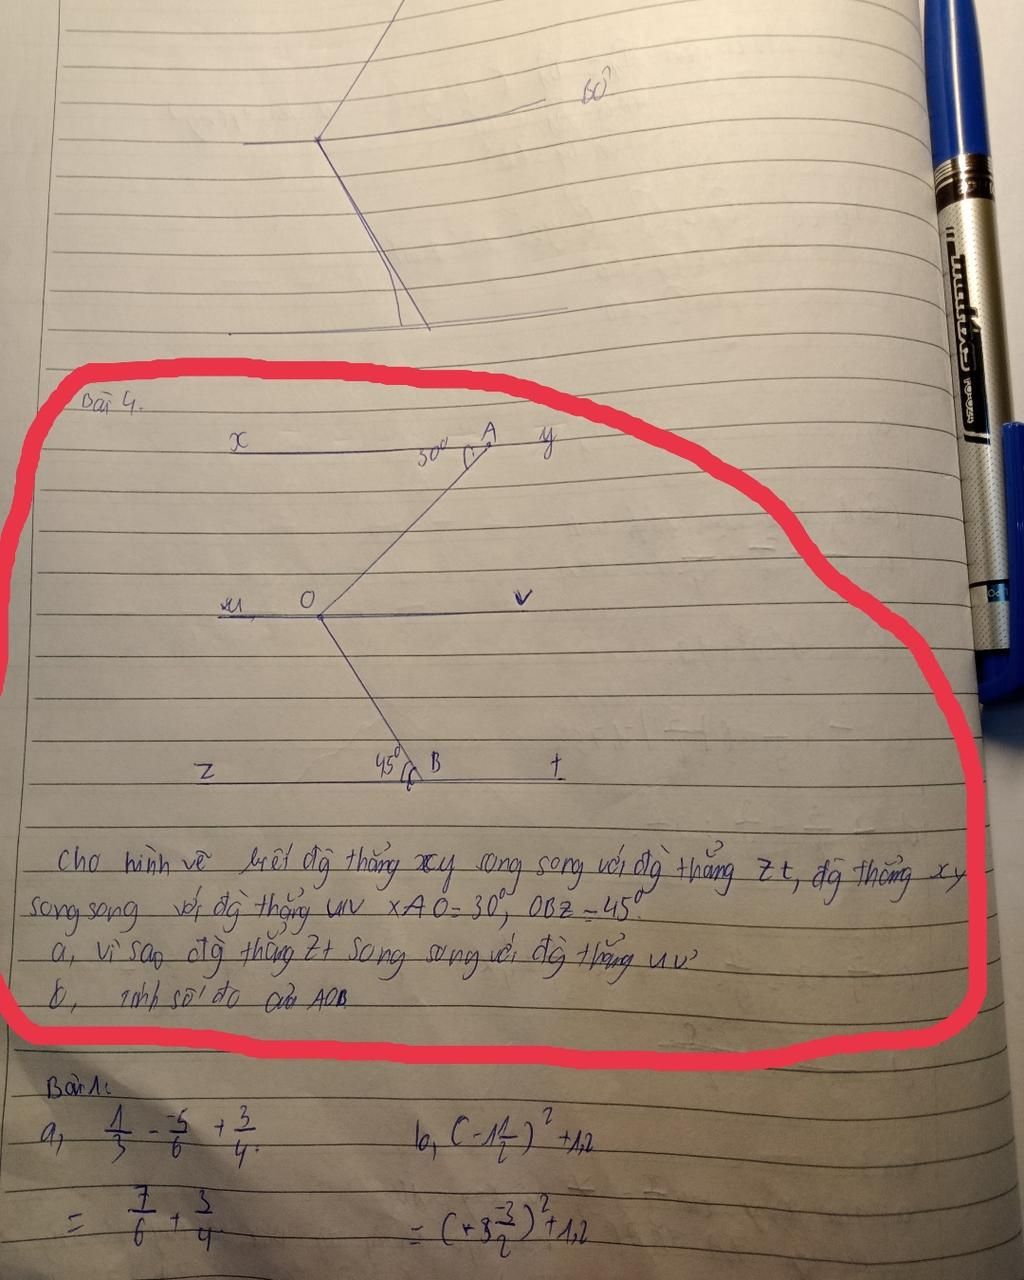 60°
Bài 4.
x 30° A y
u O v
z 45° B t
Cho hình vẽ biết đg thẳng xy song song với đg thẳng zt, đg thẳng xy
song song với đg thẳng uv xAO = 30°, OBZ = 45°.
a, vì sao đg thẳng zt song song với đg thẳng uv
b, tính số đo của AOB
Bài 1:
a, 1/3 - -5/6 + 3/4. b, (-1 1/2)² + 1,2
= 7/6 + 3/4 = ( -3/2)² + 1,2